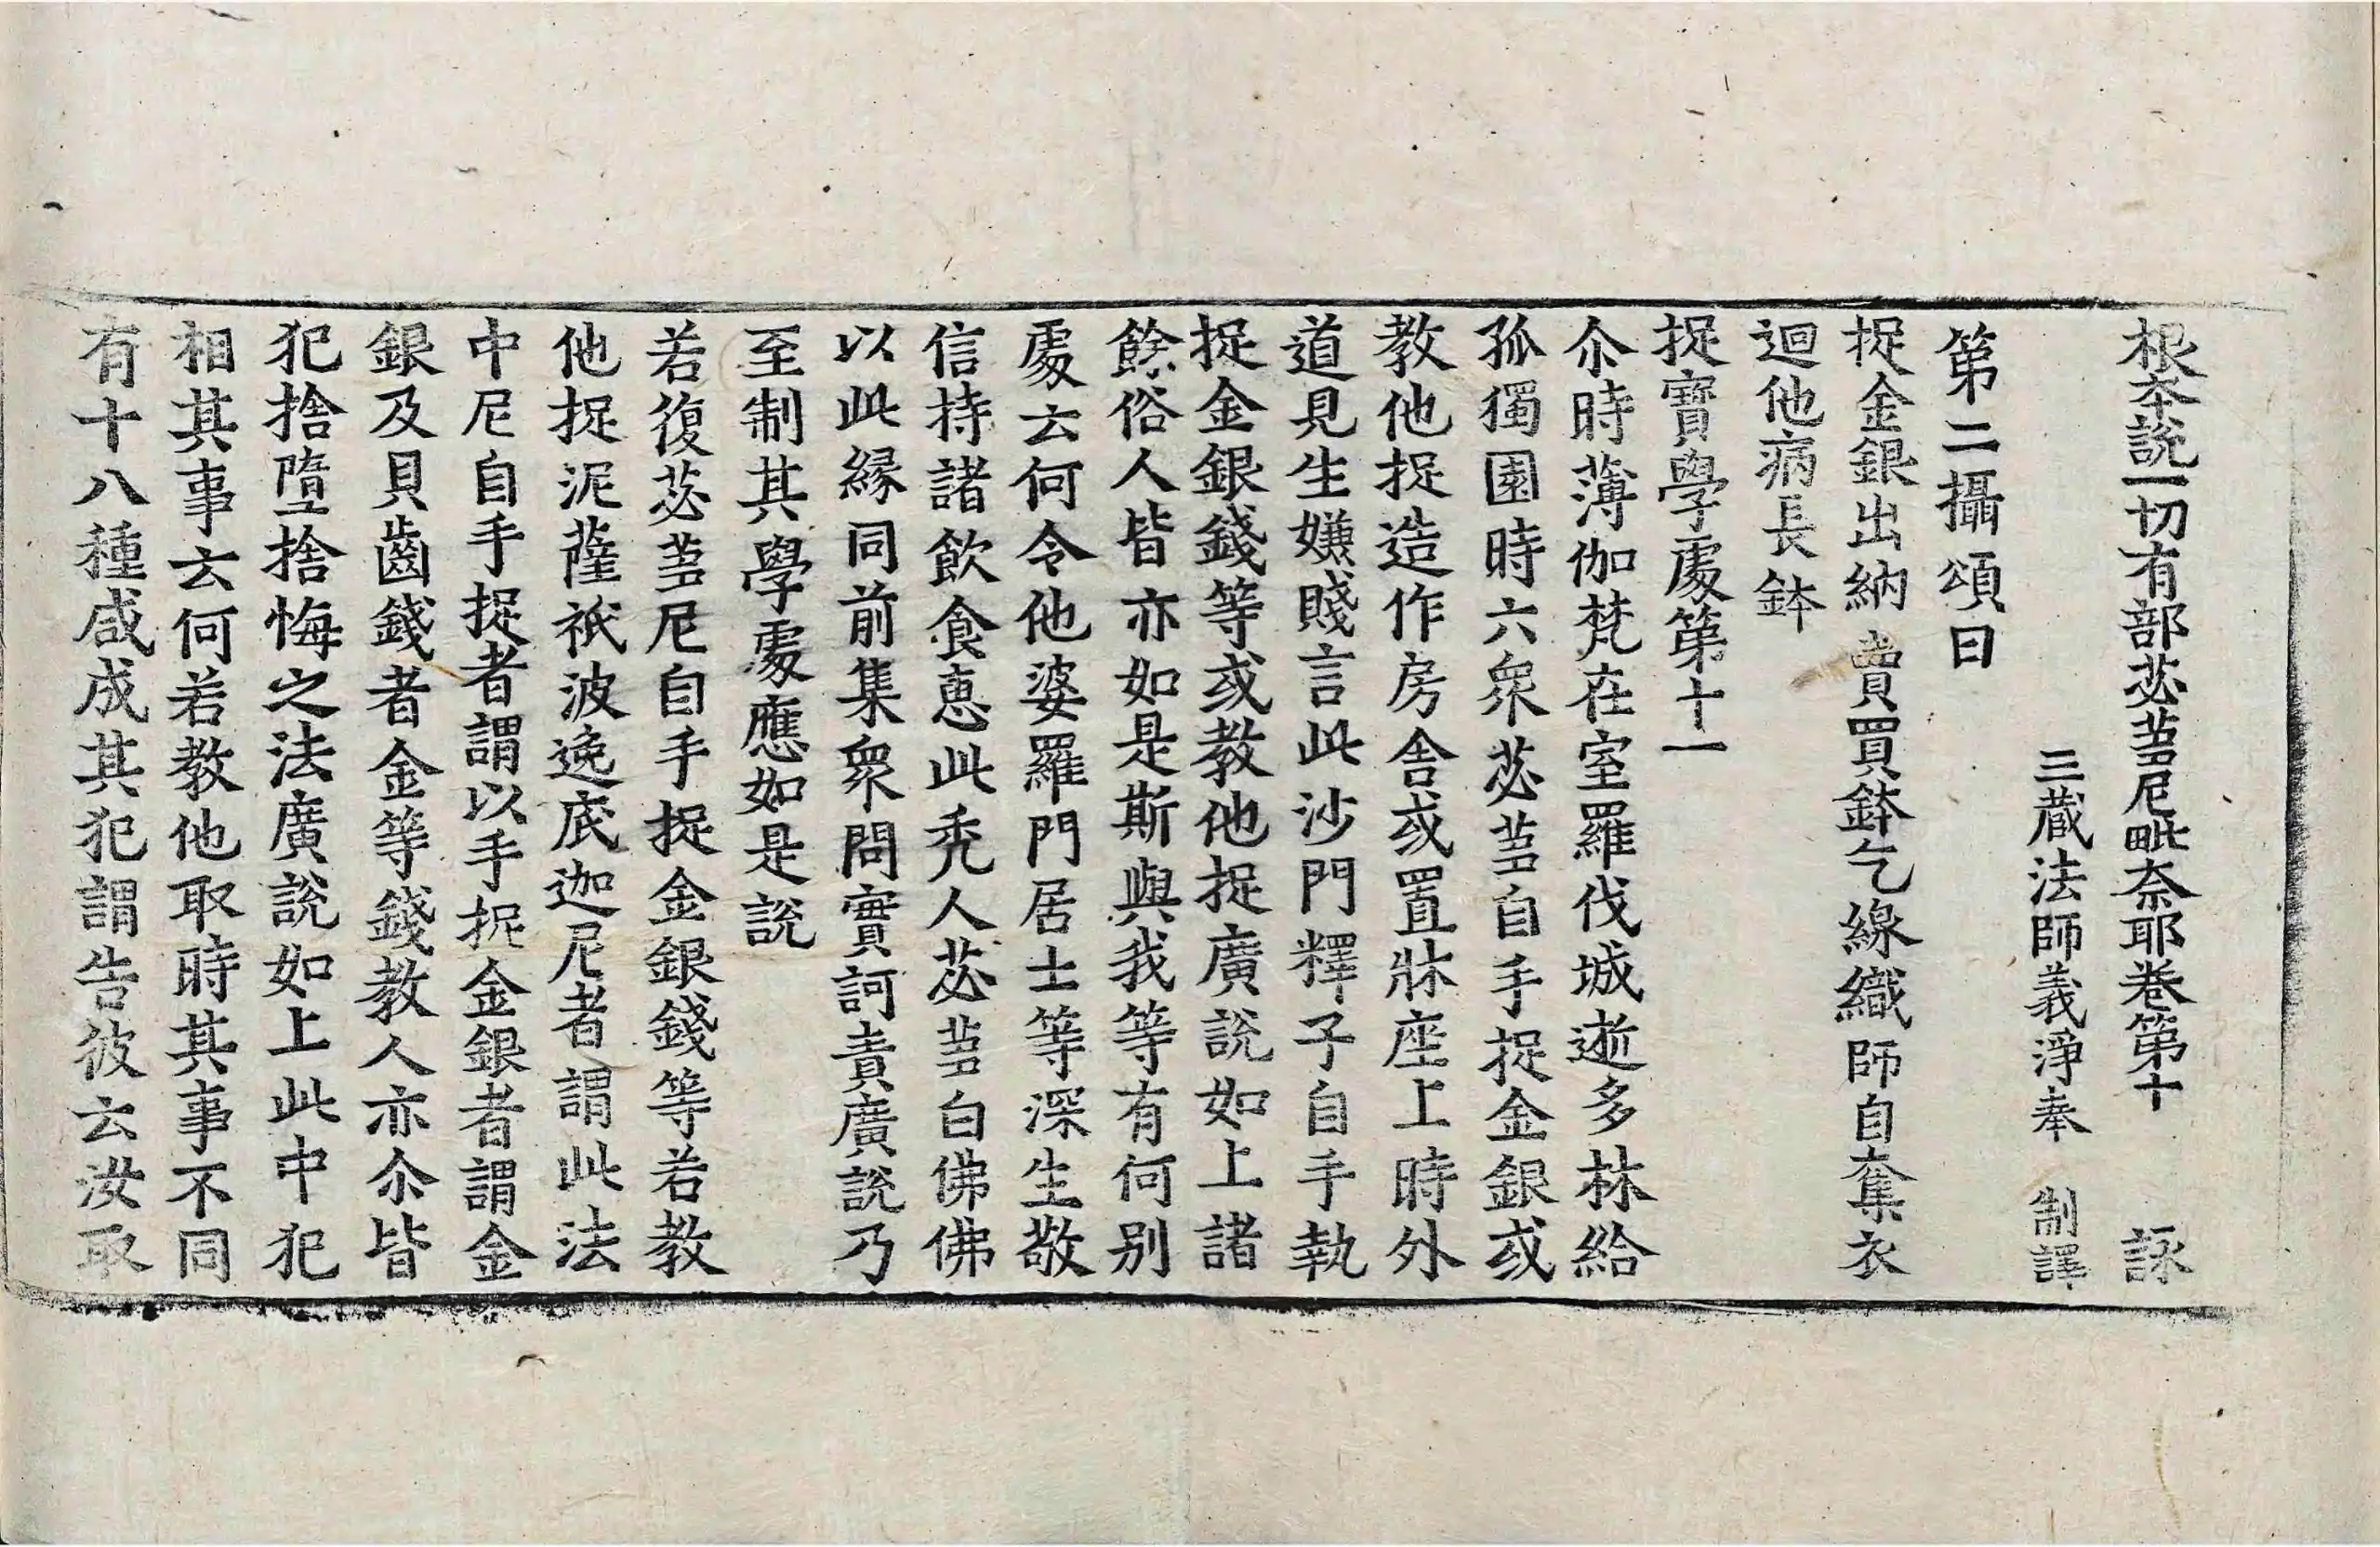 根本說一切有部苾芻尼毗奈耶卷第十 詠
三藏法師義淨奉 制譯
第二攝頌曰
捉金銀出納 賣買鉢乞線織師自奪衣
迴他病長鉢
捉寶學處第十一
尒時薄伽梵在室羅伐城逝多林給
孤獨園時六衆苾芻自手捉金銀或
教他捉造作房舍或置牀座上時外
道見生嫌賤言此沙門釋子自手執
捉金銀錢等或教他捉廣說如上諸
餘俗人皆亦如是斯與我等有何別
處云何令他婆羅門居士等深生敬
信持諸飲食惠此禿人苾芻白佛佛
以此緣同前集衆問實訶責廣說乃
至制其學處應如是說
若復苾芻尼自手捉金銀錢等若教
他捉泥薩祇波逸底迦尼者謂此法
中尼自手捉者謂以手捉金銀者謂金
銀及貝齒錢者金等錢教人亦尒皆
犯捨墮捨悔之法廣說如上此中犯
相其事云何若教他取時其事不同
有十八種咸成其犯謂告彼云汝取